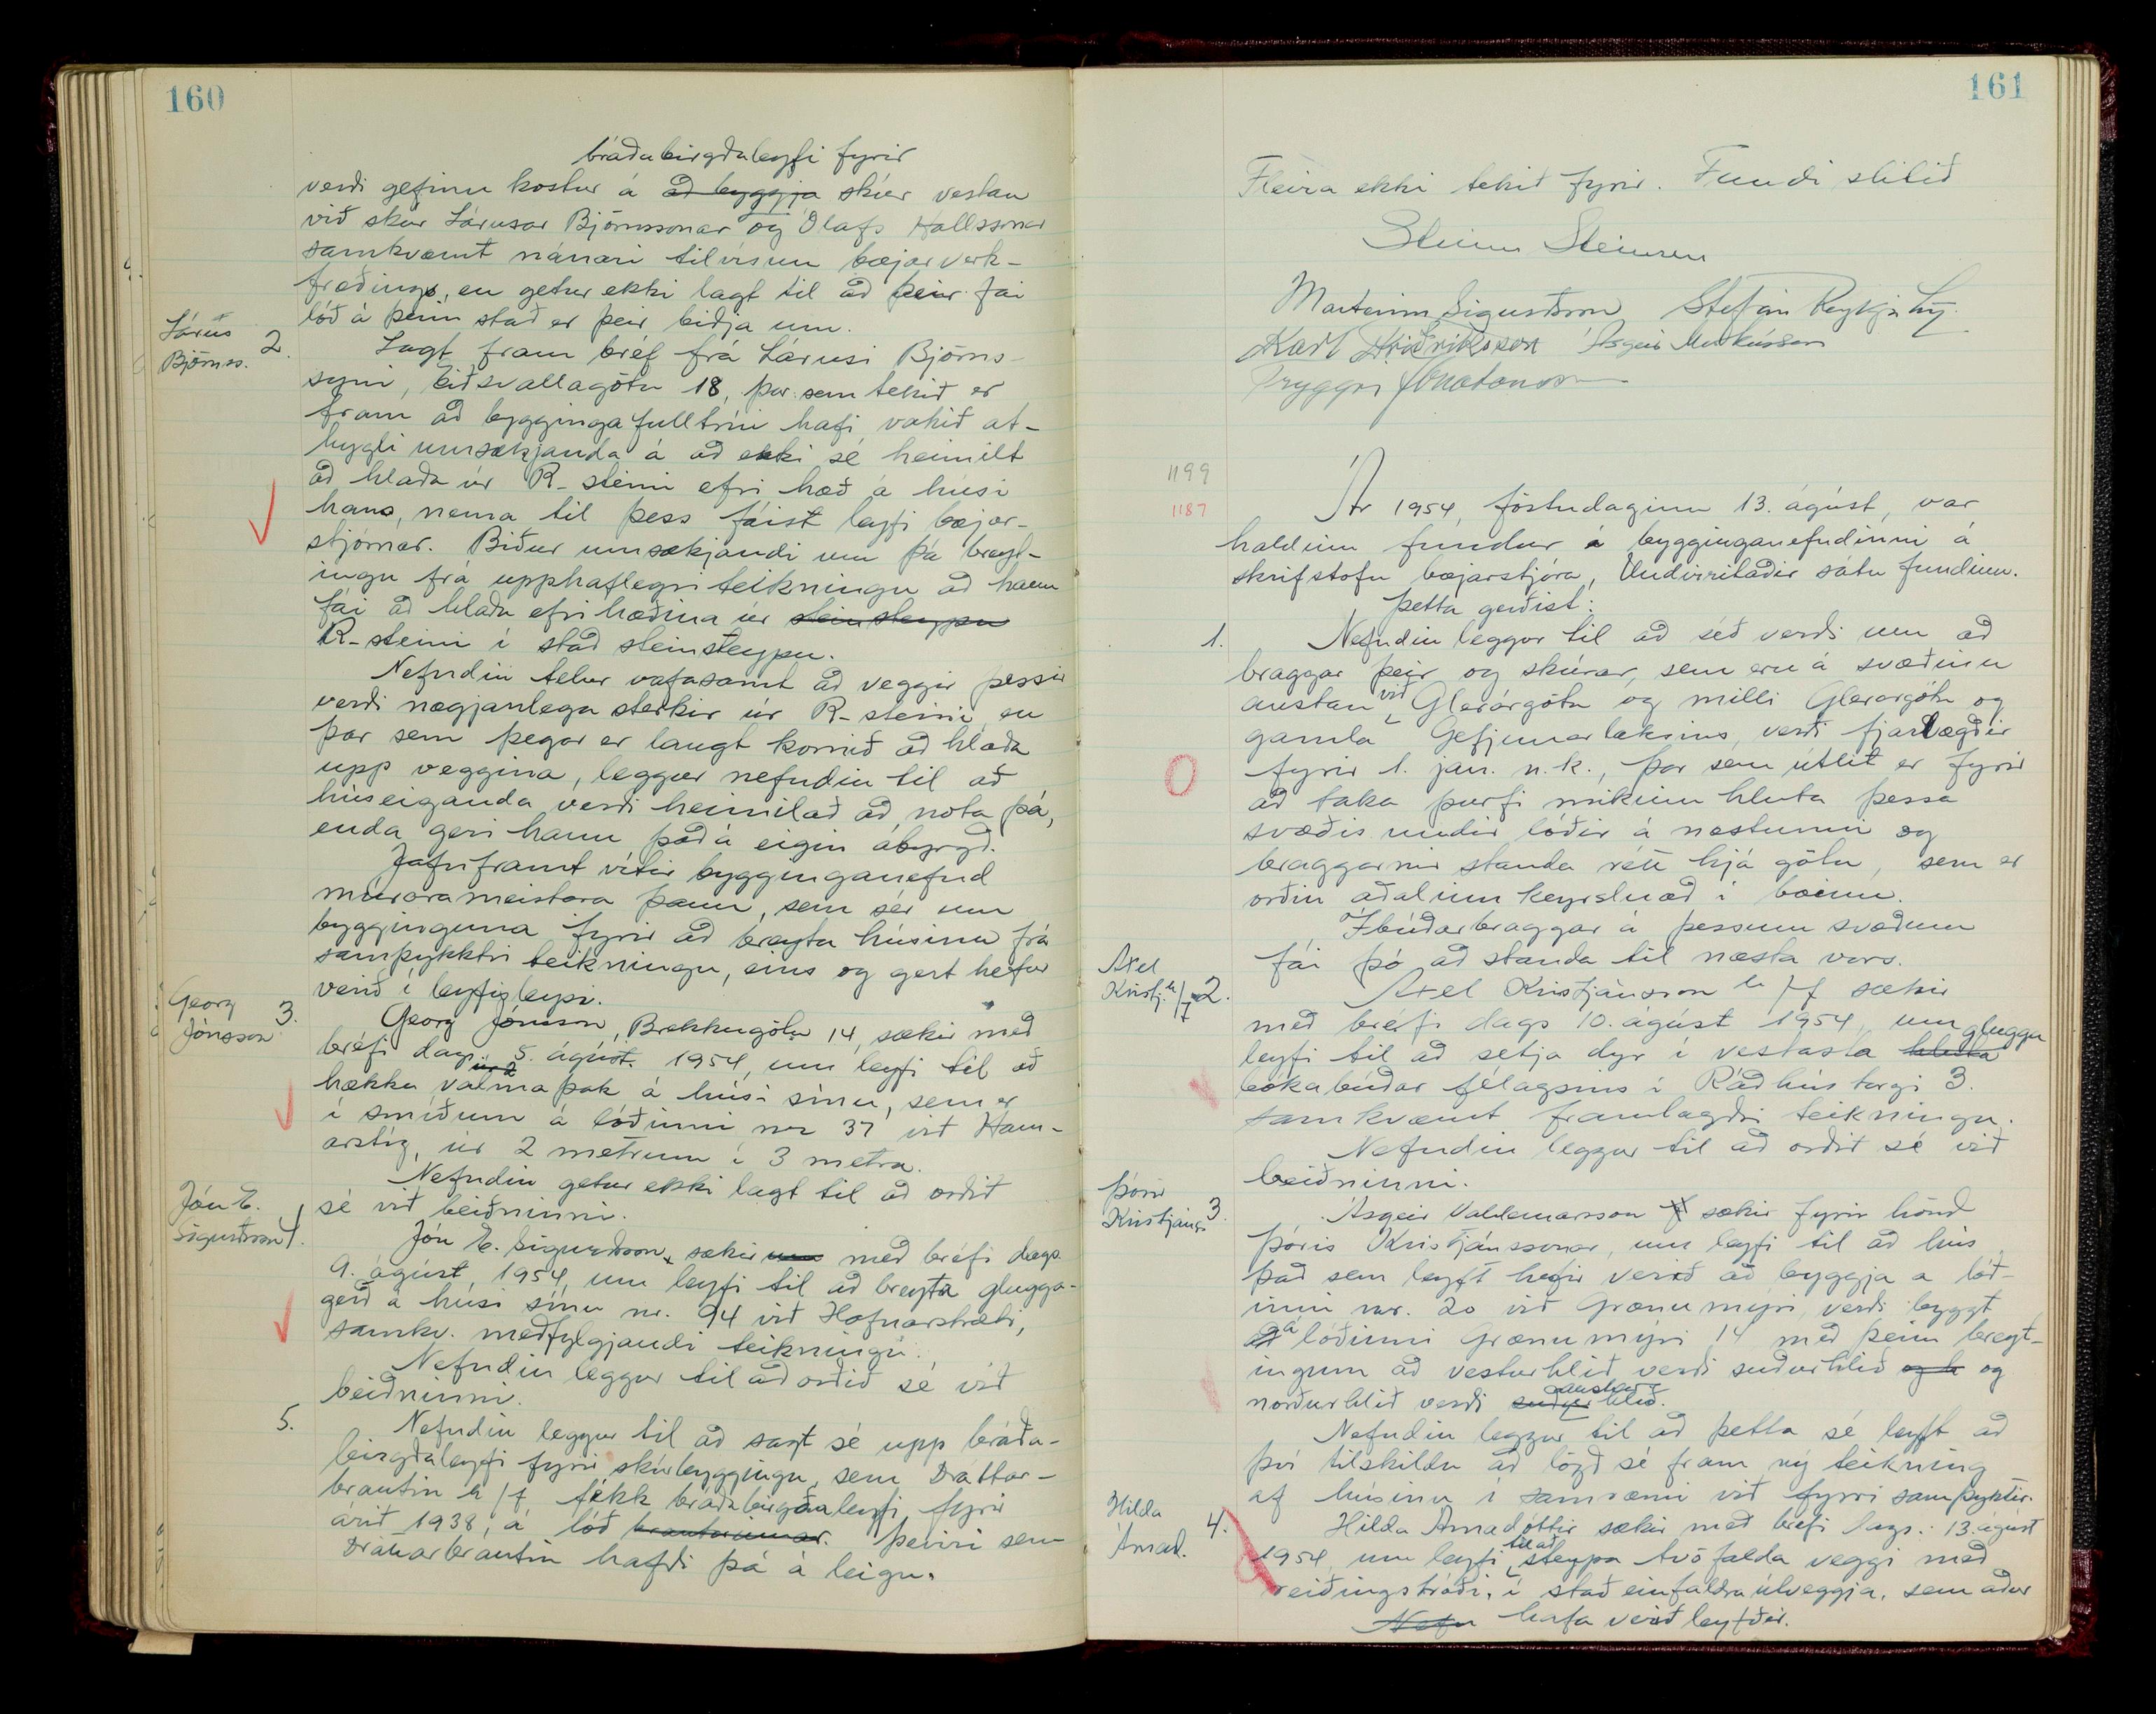 160
bráðabirgðaleyfi fyrir
verði gefinn kostur á að byggja skúr vestan
við skúr Lárusar Björnssonar og Ólafs Hallssonar
samkvæmt nánari tilvísun bæjarverk-
fræðings, en getur ekki lagt til að þeir fái
lóð á þeim stað er þeir biðja um.
Lárus
Björnss. 2.
Lagt fram bréf frá Lárusi Björns-
syni, Eiðsvallagötu 18, þar sem tekið er
fram að byggingafulltrúi hafi vakið at-
hygli umsækjanda á að ekki sé heimilt
að hlaða úr R-steini efri hæð á húsi
hans, nema til þess fáist leyfi bæjar-
stjórnar. Biður umsækjandi um þá breyt-
ingu frá upphaflegri teikningu að hann
fái að hlaða efri hæðina úr steinsteypu
R-steini í stað steinsteypu.
Nefndin telur vafasamt að veggir þessir
verði nægjanlega sterkir úr R-steini, en
þar sem þegar er langt komið að hlaða
upp veggina, leggur nefndin til að
húseiganda verði heimilað að nota þá,
enda geri hann það á eigin ábyrgð.
Jafnframt vítir bygginganefnd
múrarameistara þann, sem sér um
bygginguna fyrir að breyta húsinu frá
samþykktri teikningu, eins og gert hefur
verið í leyfisleysi.
Georg
Jónsson 3.
Georg Jónsson, Brekkugötu 14, sækir með
bréfi dags. 5. ágúst. 1954, um leyfi til að
hækka valmaþak á húsi sínu, sem er
í smíðum á lóðinni nr 37 við Ham-
arstíg, úr 2 metrum í 3 metra.
Nefndin getur ekki lagt til að orðið
sé við beiðninni.
Jón E.
Sigurðsson 4.
Jón E. Sigurðsson, sækir um með bréfi dags
9. ágúst, 1954, um leyfi til að breyta glugga-
gerð á húsi sínu nr. 94 við Hafnarstræti,
samkv. meðfylgjandi teikningu.
Nefndin leggur til að orðið sé við
beiðninni.
5.
Nefndin leggur til að sagt sé upp bráða-
birgðaleyfi fyrir skúrbyggingu, sem Dráttar-
brautin h/f fékk bráðabirgðaleyfi fyrir
árið 1938, á lóð brautarinnar. þeirri sem
Dráttarbrautin hafði þá á leigu.
161
Fleira ekki tekið fyrir. Fundi slitið
Steinn Steinsen
Marteinn Sigurðsson Stefán Reykjalín
Karl Friðriksson Ásgeir Markússon
Tryggvi Jónatansson
1199
1187
Ár 1954, föstudaginn 13. ágúst, var
haldinn fundur í bygginganefndinni á
skrifstofu bæjarstjóra, Undirritaðir sátu fundinn.
Þetta gerðist:
1.
Nefndin leggur til að séð verði um að
braggar þeir og skúrar, sem eru á svæðinu
austan við Glerárgötu og milli Glerárgötu og
gamla Gefjunarlæksins, verði fjarlægðir
fyrir 1. jan. n.k., þar sem útlit er fyrir
að taka þurfi mikinn hluta þessa
svæðis undir lóðir á næstunni og
braggarnir standa rétt hjá götu, sem er
orðin aðalinnkeyrsluæð í bæinn.
Íbúðarbraggar á þessum svæðum
fái þó að standa til næsta vors.
Axel
Kristj. h/f 2.
Axel Kristjánsson h/f sækir
með bréfi dags 10. ágúst 1954, um
leyfi til að setja dyr í vestasta hluta glugga
bókabúðar félagsins í Ráðhústorgi 3.
samkvæmt framlagðri teikningu.
Nefndin leggur til að orðið sé við
beiðninni.
Þórir
Kristjánss. 3.
Ásgeir Valdemarsson f sækir fyrir hönd
Þóris Kristjánssonar, um leyfi til að hús
það sem leyft hefir verið að byggja á lóð-
inni nr. 20 við Grænumýri, verði byggt
á lóðinni Grænumýri 14 með þeim breyt-
ingum að vesturhlið verði suðurhlið og h og
norðurhlið verði suður austurhlið.
Nefndin leggur til að þetta sé leyft að
því tilskildu að lögð sé fram ný teikning
af húsinu í samræmi við fyrri samþyktir.
Hilda
Árnad. 4.
Hilda Árnadóttir sækir með bréfi dags.. 13. ágúst
1954, um leyfi til að steypa tvöfalda veggi með
reiðingstróði, í stað einfaldra útveggja, sem áður
Nefn hafa verið leyfðir.